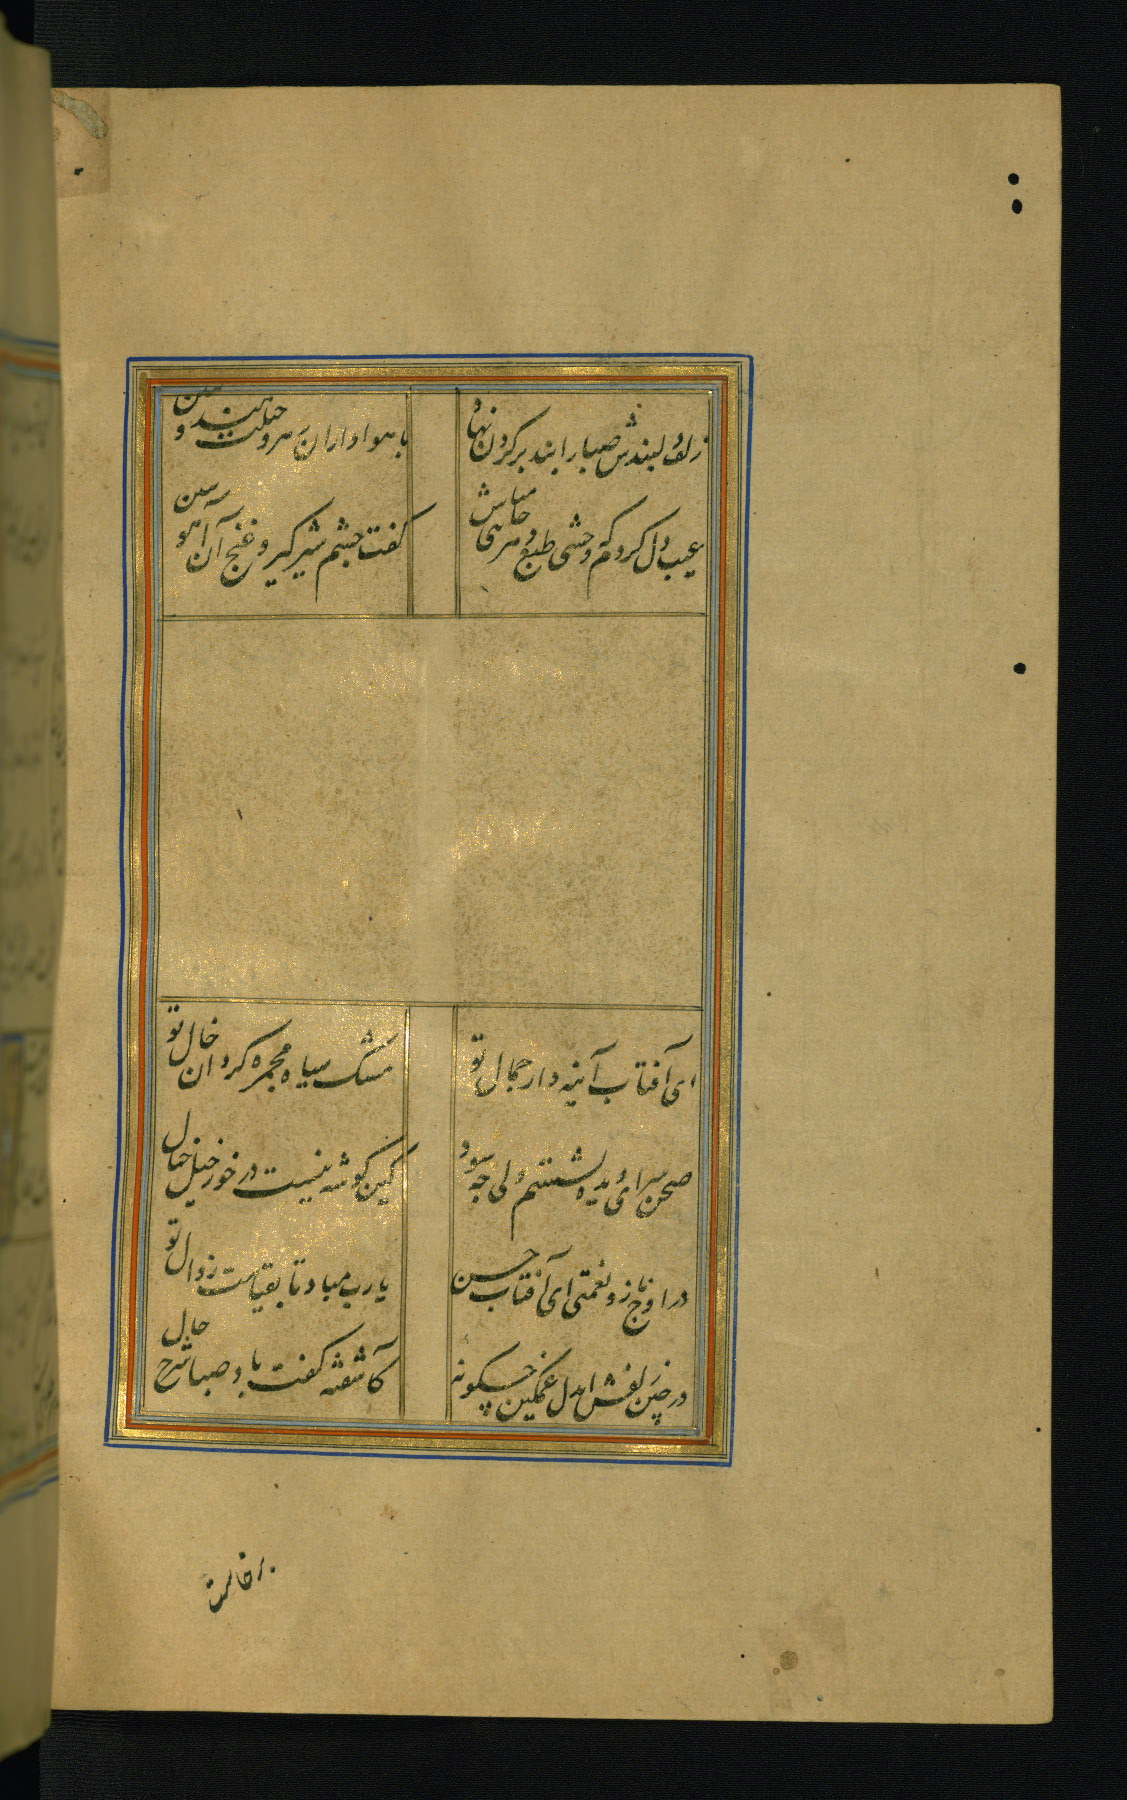 زلف دلبندش صبا را بند بر گردن نهاد
با هواداران رهرو حیلت هندو ببین
عیب دل کردم که وحشی طبع و هرجایی مباش
گفت چشم شیرگیر و غنج آن آهو ببین
ای آفتاب آینه دار جمال تو
مشک سیاه مجمره گردان خال تو
صحن سرای دیده بشستم ولی چه سود
کین گوشه نیست در خور خیل خیال
در اوج ناز و نعمتی ای آفتاب حسن
یارب مباد تا بقیامت زوال تو
در چین زلفش ای دل غمگین چگونه
کاشفته گفت باد صبا شرح حال
برخاست